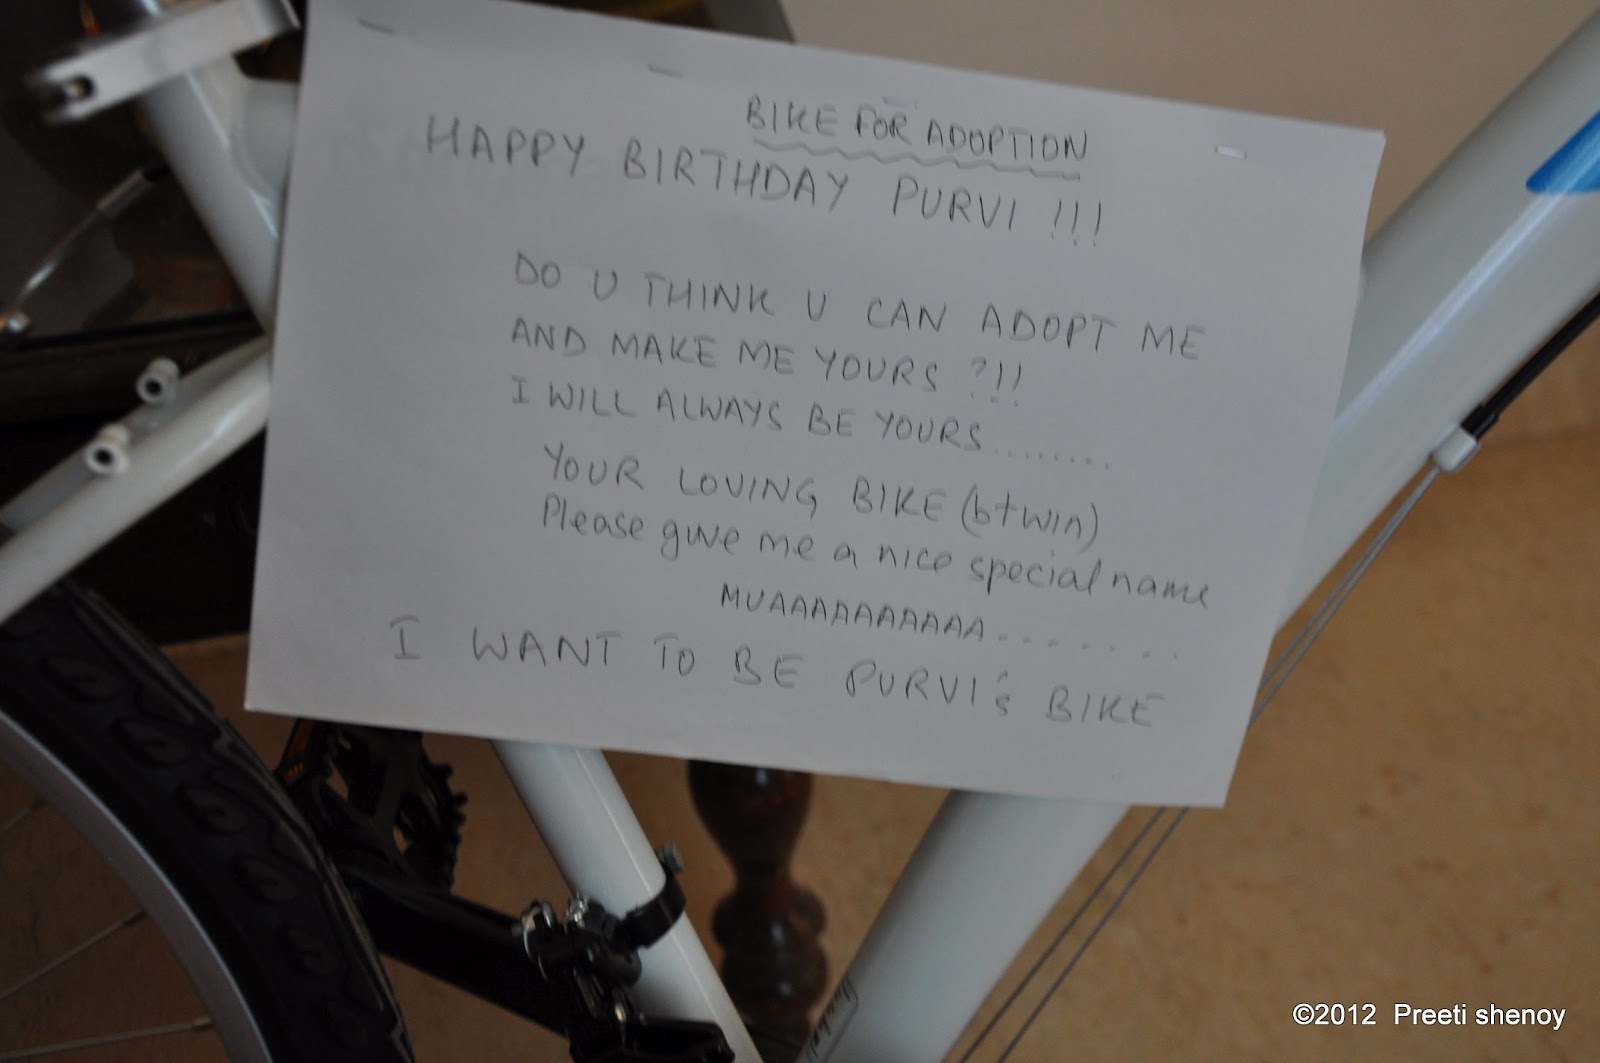 BIKE FOR ADOPTION
HAPPY BIRTHDAY PURVI !!!
DO U THINK U CAN ADOPT ME
AND MAKE ME YOURS ?!!
I WILL ALWAYS BE YOURS........
YOUR LOVING BIKE (btwin)
Please give me a nice special name
MUAAAAAAAAAAA.......
I WANT TO BE PURVI's BIKE
©2012 Preeti shenoy